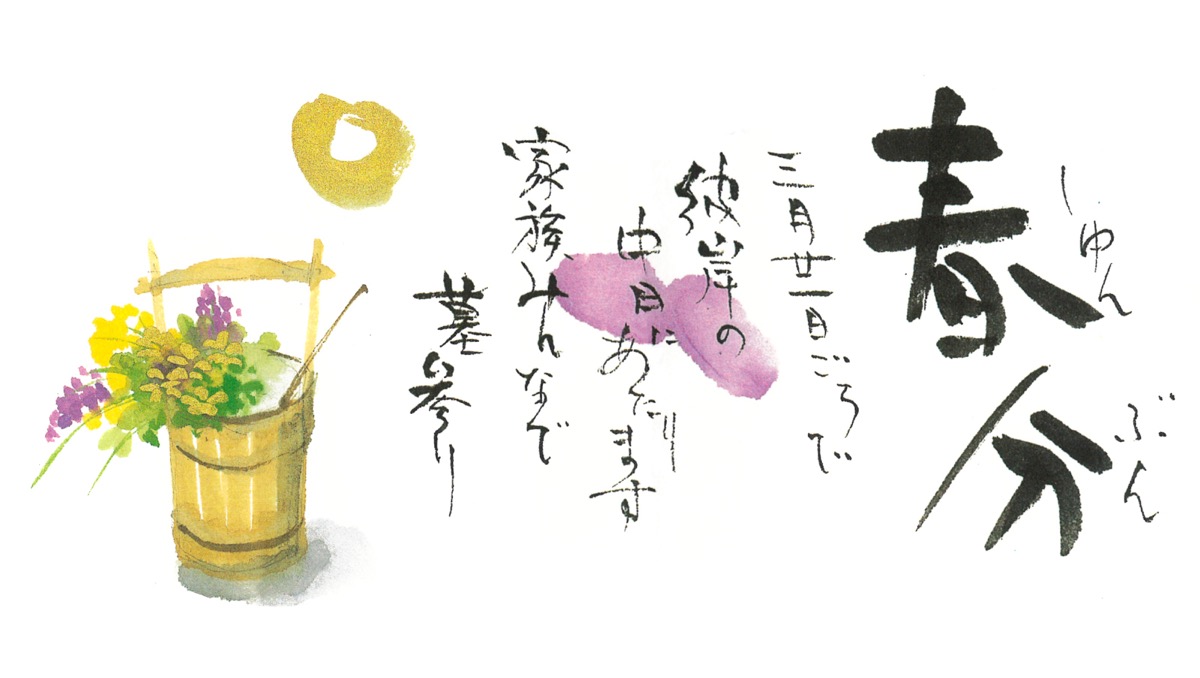 春分
しゅんぶん
三月廿一日ごろで
彼岸の
中日にあたります
家族みんなで
墓参り